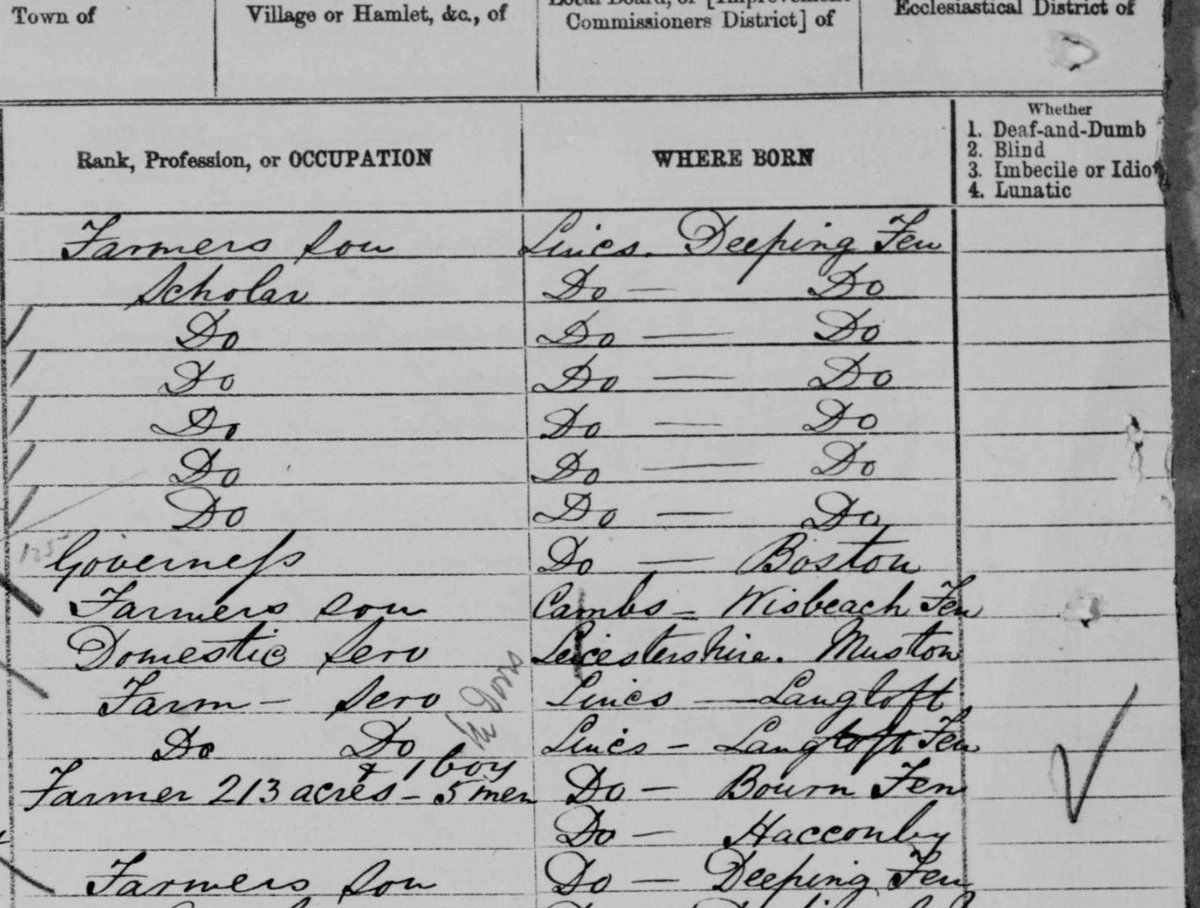 Town of Village or Hamlet, &c., of Local Board, or [Improvement Ecclesiastical District of
Commissioners District] of
Rank, Profession, or OCCUPATION WHERE BORN Whether
1. Deaf-and-Dumb
2. Blind
3. Imbecile or Idiot
4. Lunatic
Farmers Son Lincs. Deeping Fen
Scholar Do — Do
Do Do — Do
Do Do — Do
Do Do — Do
Do Do — Do
Do Do — Do
Governess Do — Boston
Farmers Son Cambs – Wisbeach Fen
Domestic Serv Leicestershire. Muston
Farm – Serv Lincs — Langtoft
Do Do Lincs – Langtoft Fen
& 1 boy
Farmer 213 acres – 5 men Do – Bourn Fen
Do – Hacconby
Farmers Son Do – Deeping Fen